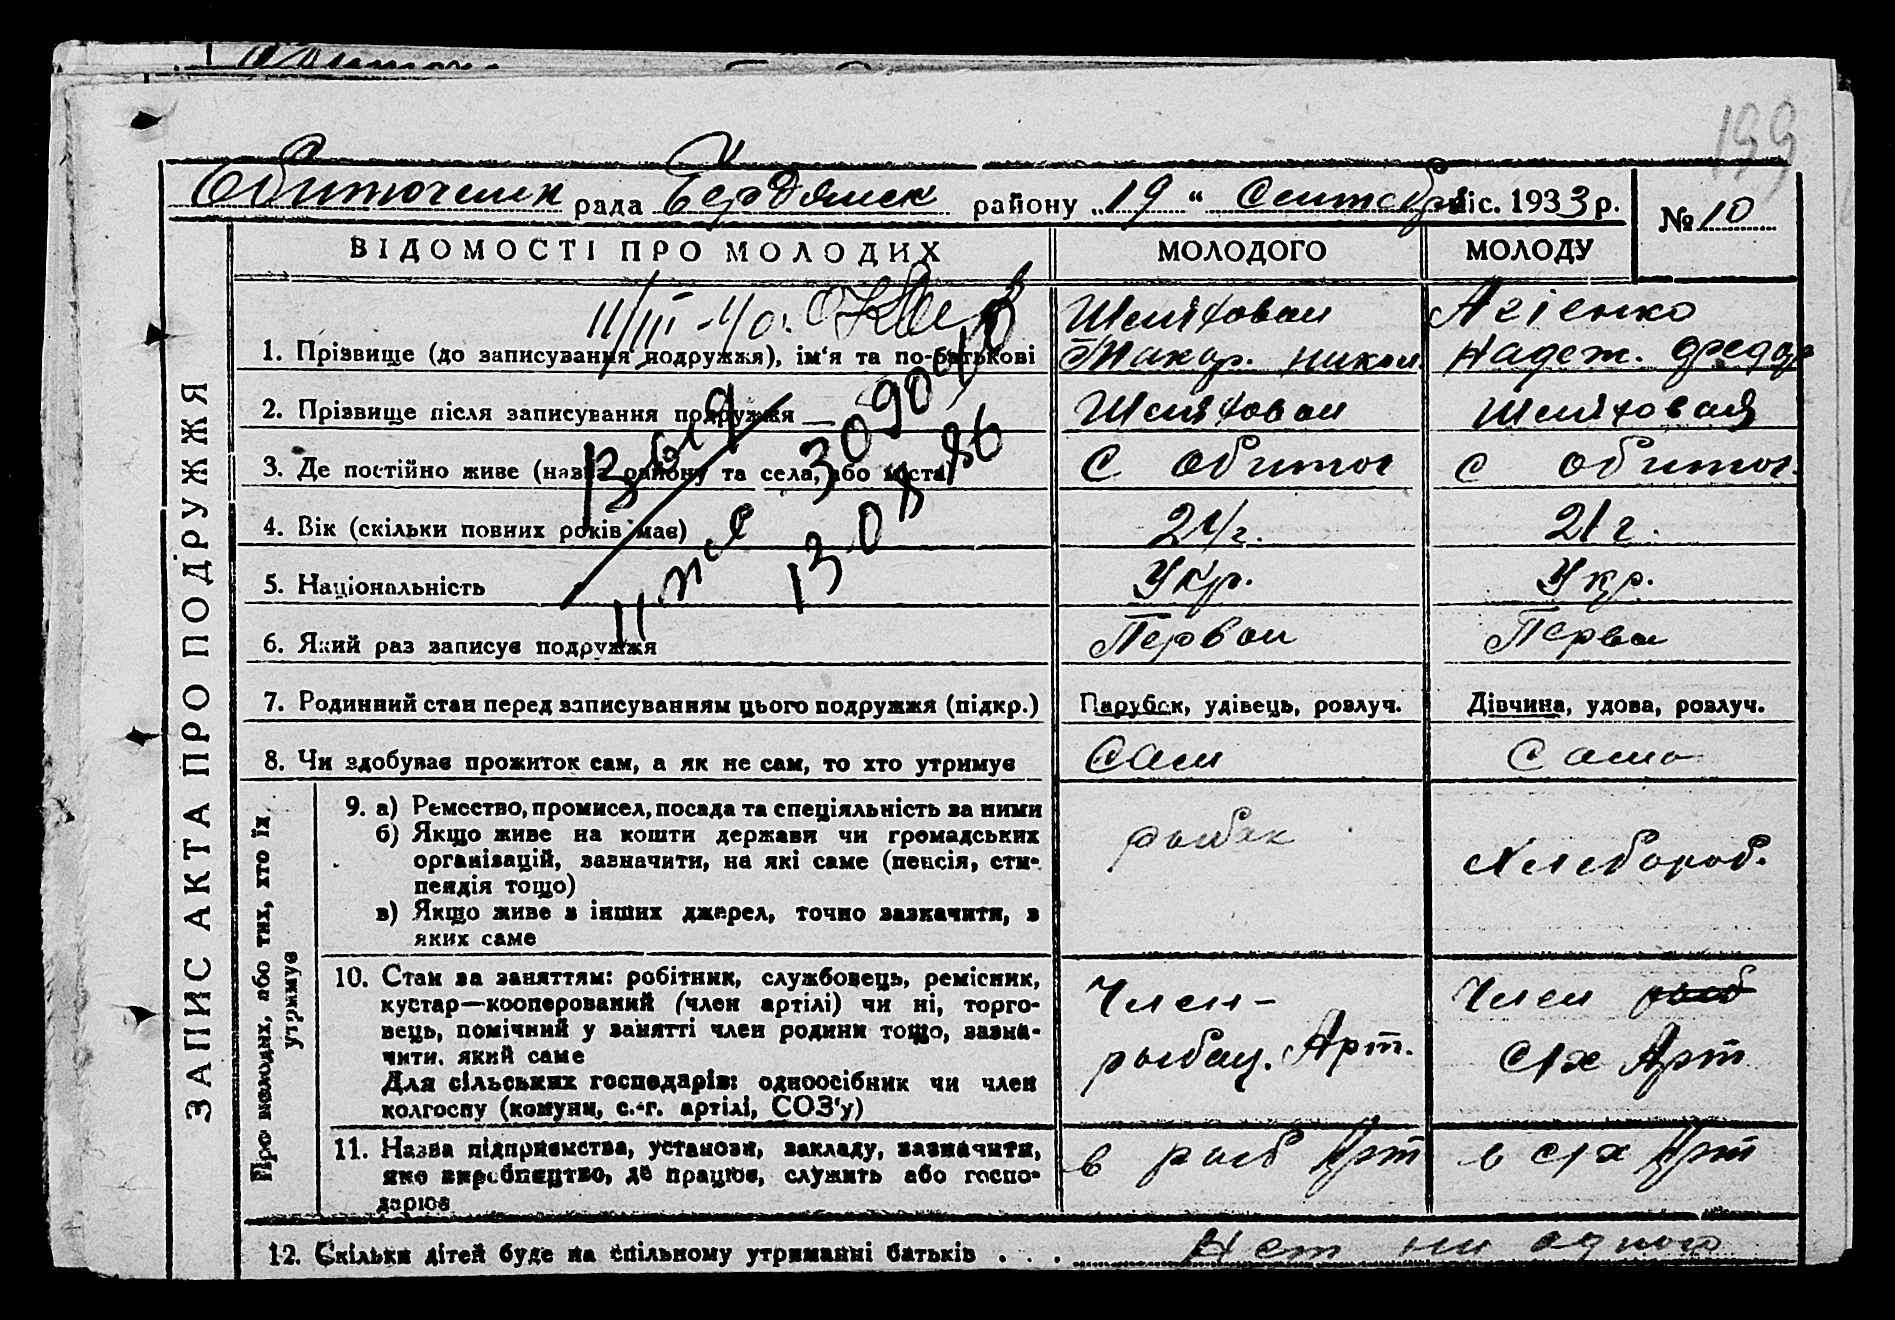 199
Обиточный рада Бердянск району „19“ Сентябр міс. 1933 р. № 10
ЗАПИС АКТА ПРО ПОДРУЖЖЯ
ВІДОМОСТІ ПРО МОЛОДИХ МОЛОДОГО МОЛОДУ
11/III-40.
1. Прізвище (до записування подружжя), ім'я та по-батькові Макар. Никол. Агіенко Надеж. Федор
2. Прізвище після записування подружжя
3. Де постійно живе (назва району та села, або міста) с Обиточ с Обиточ.
4. Вік (скільки повних років має) 24 г. 21 г.
5. Національність Укр. Укр.
6. Який раз записує подружжя Первой Перва
7. Родинний стан перед записуванням цього подружжя (підкр.) Парубок, удівець, розлуч. Дівчина, удова, розлуч.
8. Чи здобуває прожиток сам, а як не сам, то хто утримує Сам Сама
Про молодих, або тих, хто їх утримує
9. а) Ремество, промисел, посада та спеціяльність за ними рыбак Хлебороб.
б) Якщо живе на кошти держави чи громадських
організацій, зазначити, на які саме (пенсія, сти-
пендія тощо)
в) Якщо живе з інших джерел, точно зазначити, з
яких саме
10. Стан за заняттям: робітник, службовець, ремісник, Член- Член рыб
кустар—кооперований (член артілі) чи ні, торго-
вець, помічний у занятті член родини тощо, зазна- рыбац. Арт. С/х Арт
чити, який саме
Для сільських господарів: одноосібник чи член
колгоспу (комуни, с.-г. артілі, СОЗ'у)
11. Назва підприємства, установи, закладу, зазначити, в рыб Арт в с/х Арт
яке виробництво, де працює, служить або госпо-
дарює
12. Скільки дітей буде на спільному утриманні батьків . . . Нет ни одного